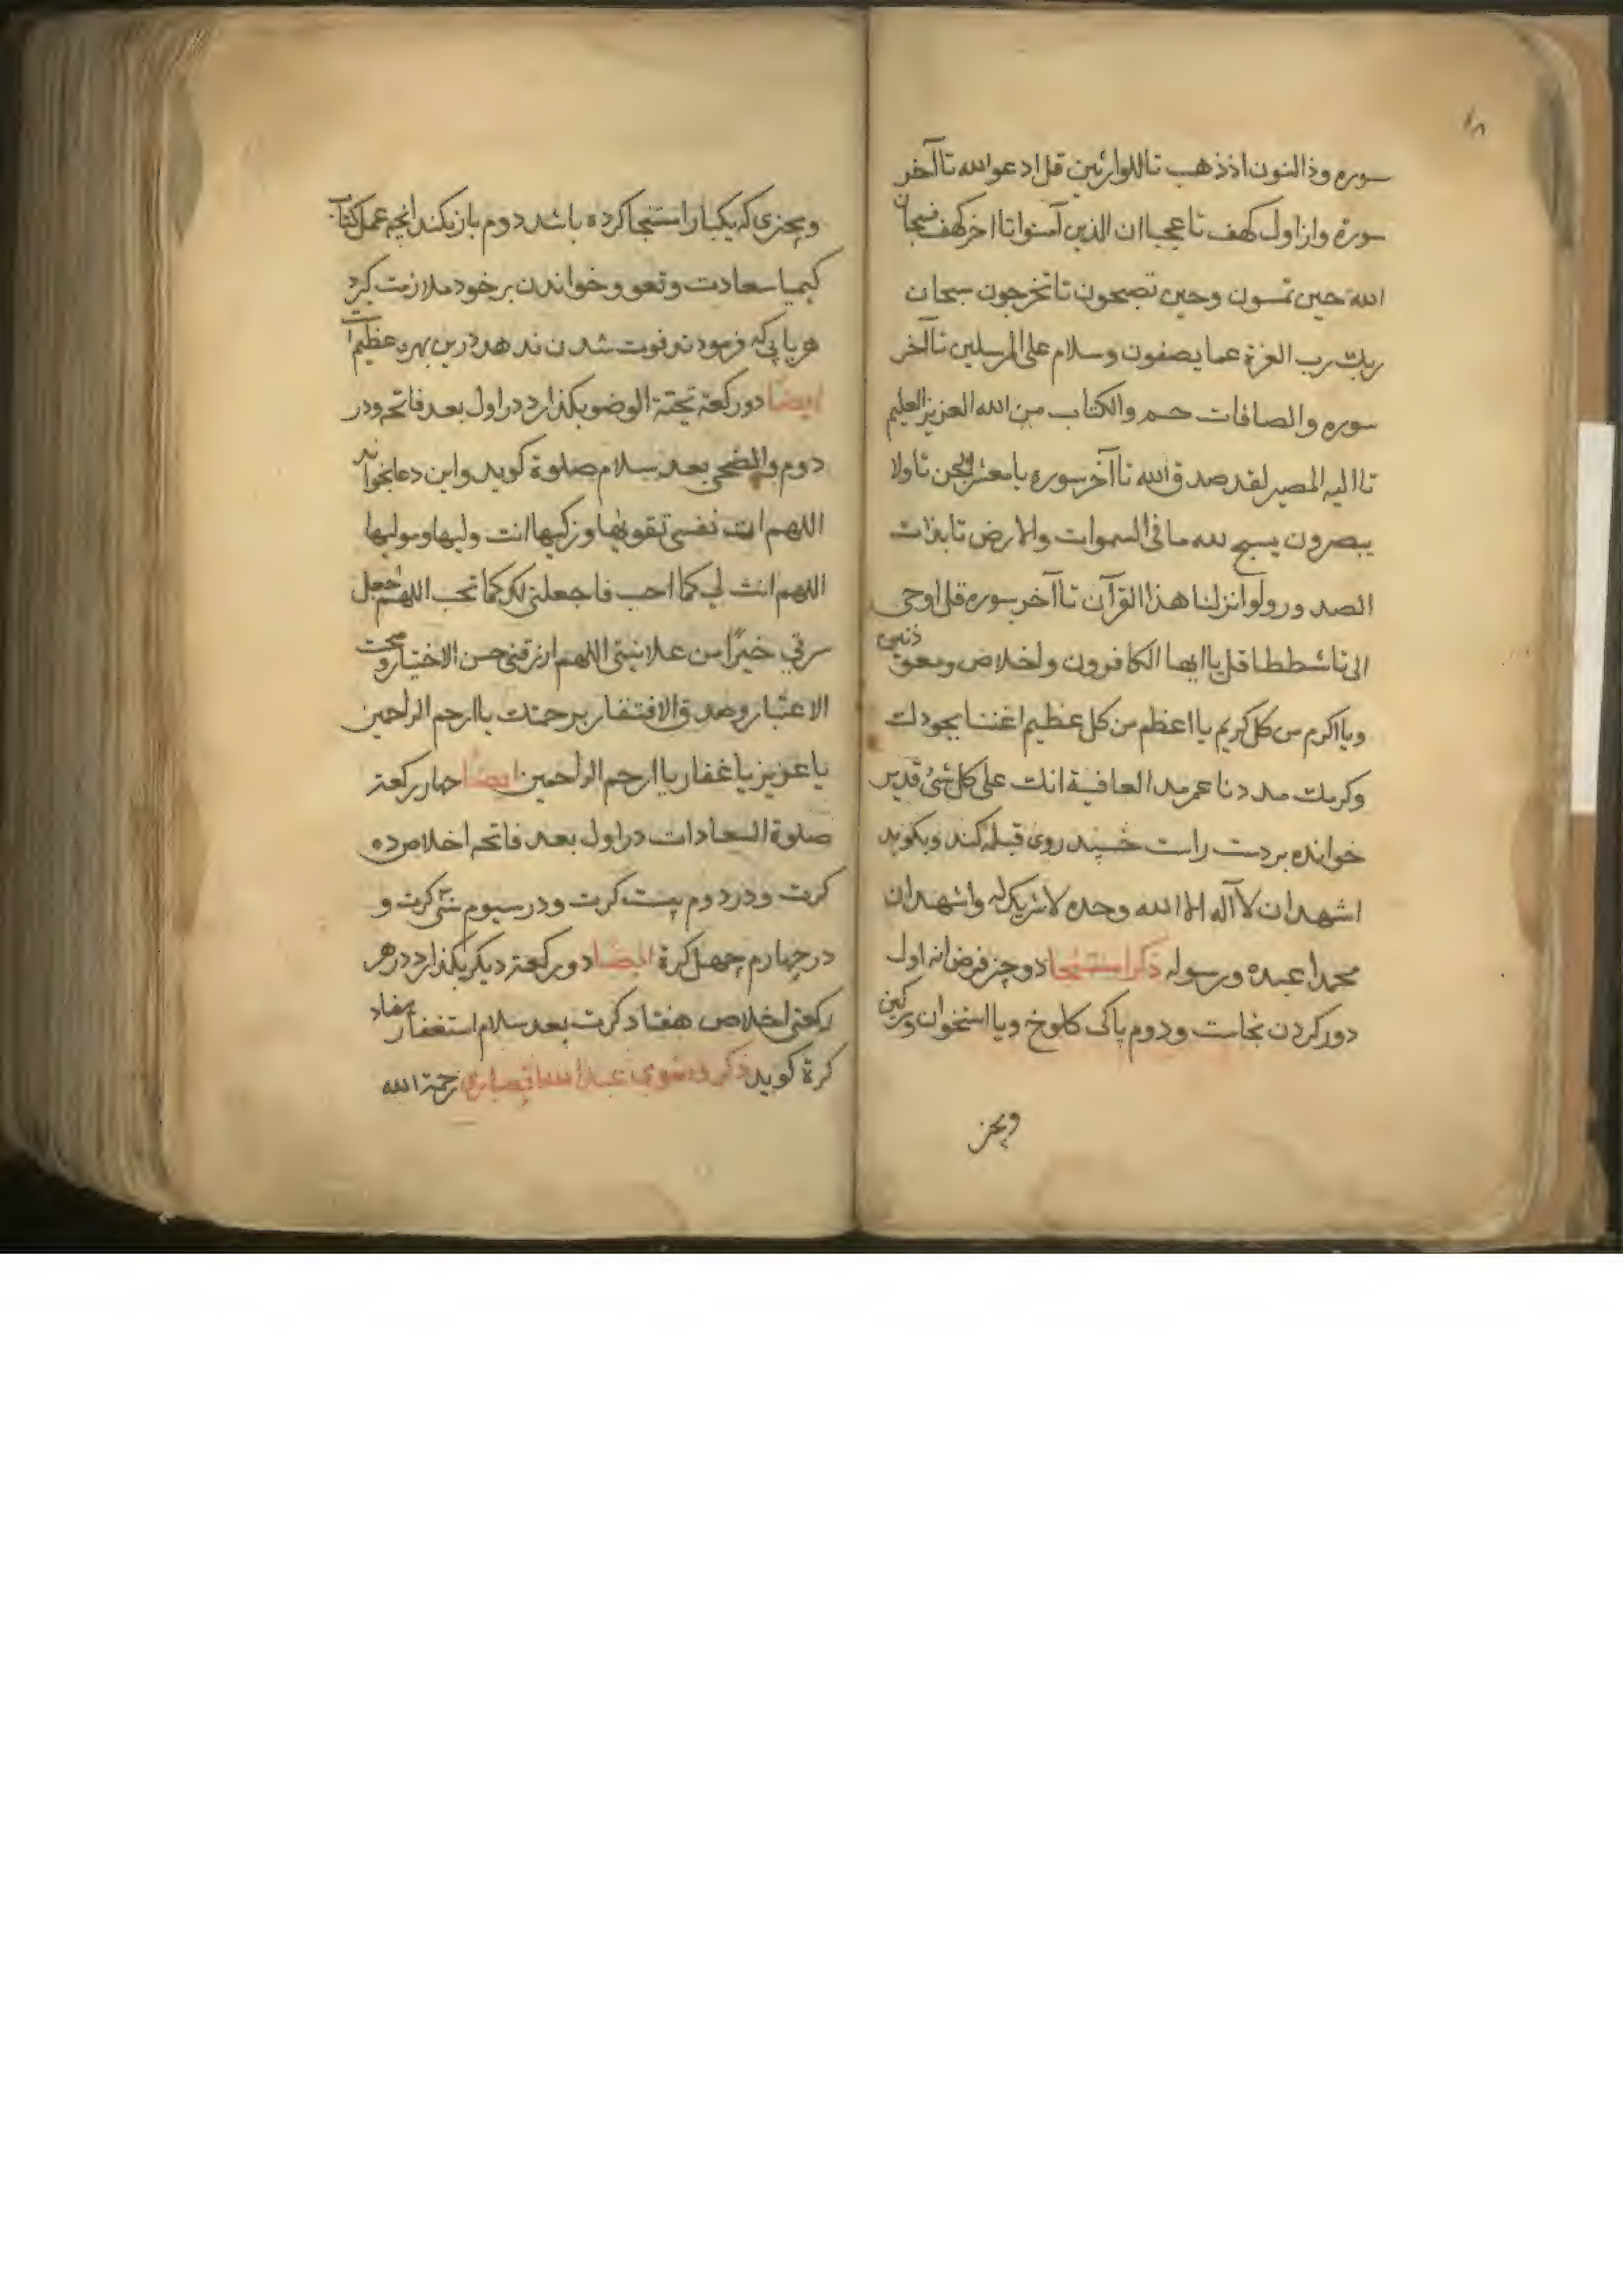 ١٨
سوره وذا النون اذ ذهب تا الوارثین قل ادعو الله تا آخر
سورة و از اول کهف تا عجبا ان الذین آمنوا تا اخر کهف فسبحان
الله حین تمسون وحین تصبحون تا تخرجون سبحان
ربك رب العزة عما یصفون وسلام علی المرسلین تا آخر
سوره والصافات حم والکتاب من الله العزیز العلیم
تا الیه المصیر لقد صدق الله تا آخر سوره یا معشر الجن تا ولا
یبصرون یسبح لله ما فی السموات والارض تا بذات
الصدور ولو انزلنا هذا القرآن تا آخر سوره قل اوحی
الی تا شططا قل یا ایها الکافرون و اخلاص و معوذتین
ویا اکرم من کل کریم یا اعظم من کل عظیم اغننا بجودك
وکرمك مددنا عمر مد العافیة انك علی کل شئ قدیر
خوانده بر دست راست خسپد روی قبله کند و بکوید
اشهد ان لا آله الا الله وحده لا شریك له واشهد ان
محمدا عبده ورسوله ذکر استنجا دو چیز فرض انه اول
دور کردن نجاست و دوم پاکی کلوخ و یا استخوان و سرکین
و بچیز
و بچیزی که یکبار استنجا کرده باشد دوم باز نکند انچه عمل کتاب
کیمیا سعادت و تعو و خواندن بر خود ملازمت کرد
هر یا بی که فرمودند فوت شدن ندهد درین بهره عظیم است
ایضا دو رکعة تحیة الوضو بکذارد در اول بعد فاتحه و در
دوم والضحی بعد سلام صلوة کوید و این دعا بخواند
اللهم ات نفسی تقویها وزکیها انت ولیها ومولیها
اللهم انت لي کما احب فاجعلنی لك کما تحب اللهم اجعل
سرتي خیرًا من علانیتی اللهم ارزقنی حسن الاختیار و صحت
الاعتبار وصدق الافتقار برحمتك یا ارحم الراحمین
یا عزیز یا غفار یا ارحم الراحمین ایضا چهار رکعة
صلوة السعادات در اول بعد فاتحه اخلاص ده
کرت و در دوم بیست کرت و در سیوم سی کرت و
در چهارم چهل کرة ایضا دو رکعة دیکر بکذارد در هر
رکعتی اخلاص هفتاد کرت بعد سلام استغفار هفتاد
کرة کوید ذکر عبد الله انصاری رحمة الله